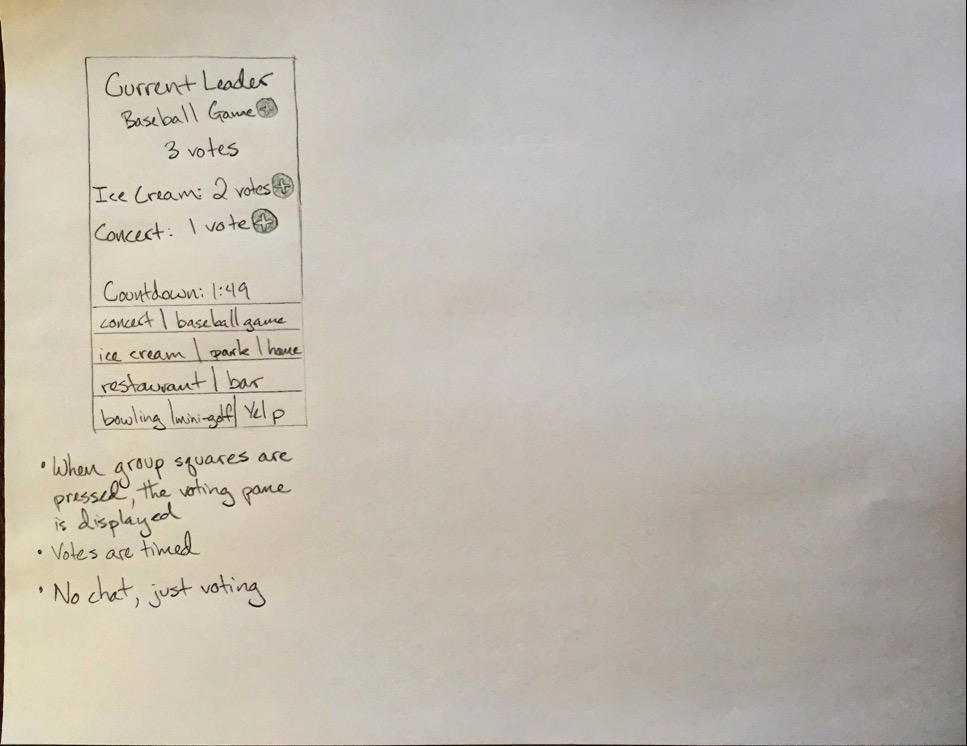 Current Leader
Baseball Game +
3 votes
Ice Cream: 2 votes +
Concert: 1 vote +
Countdown: 1:49
concert | baseball game
ice cream | park | home
restaurant | bar
bowling | mini-golf | Yelp
• When group squares are
pressed, the voting pane
is displayed
• Votes are timed
• No chat, just voting